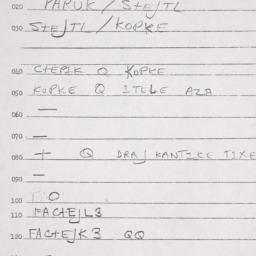 020 PARUK / STEJTL
030 STEJTL / KOPKE
040 CTEPIK Q KOPKE
050 KOPKE Q ITELE AZA
060 —
070 —
080 + Q DRAJ KANTIKE TIXE
090 —
100 O
110 FACTEJL3
120 FACTEJK3 QQ